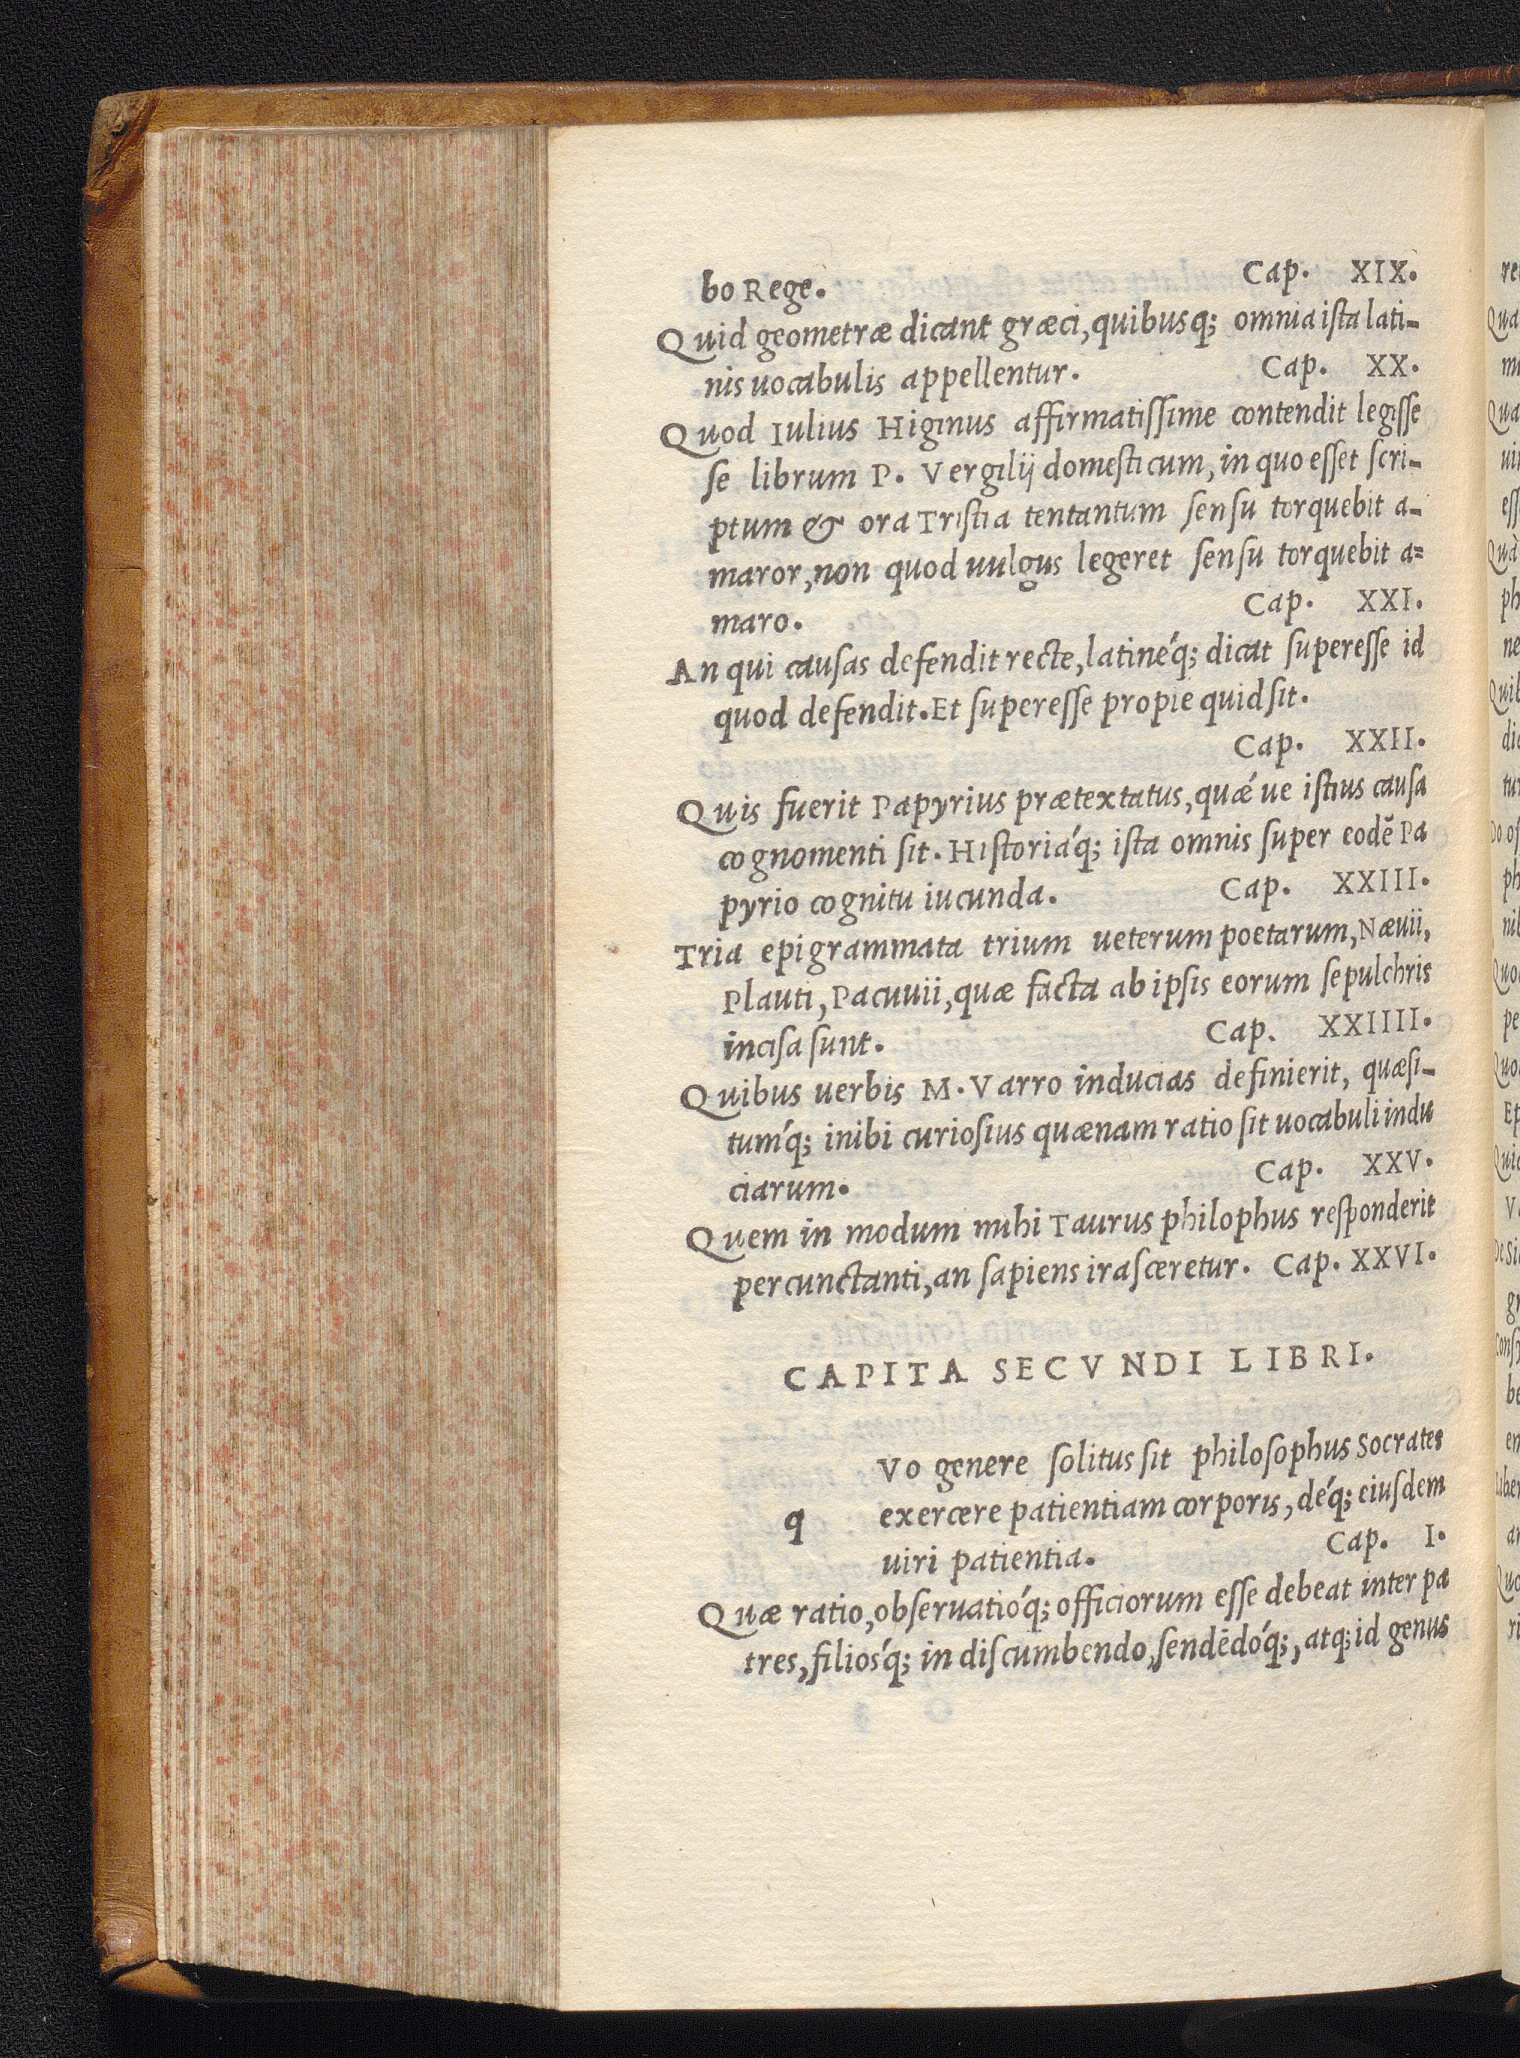 bo Rege. Cap. XIX.
Quid geometræ dicant græci, quibusq; omnia ista lati-
nis uocabulis appellentur. Cap. XX.
Quod Iulius Higinus affirmatissime contendit legisse
se librum P. Vergilij domesticum, in quo esset scri-
ptum & ora Tristia tentantum sensu torquebit a-
maror, non quod uulgus legeret sensu torquebit a=
maro. Cap. XXI.
An qui causas defendit recte, latineq́; dicat superesse id
quod defendit. Et superesse propie quid sit.
Cap. XXII.
Quis fuerit Papyrius prætextatus, quǽ ue istius causa
cognomenti sit. Historiaq́; ista omnis super eodẽ Pa
pyrio cognitu iucunda. Cap. XXIII.
Tria epigrammata trium ueterum poetarum, Næuii,
Plauti, Pacuuii, quæ facta ab ipsis eorum sepulchris
incisa sunt. Cap. XXIIII.
Quibus uerbis M. Varro inducias definierit, quæsi-
tumq́; inibi curiosius quænam ratio sit uocabuli indu
ciarum. Cap. XXV.
Quem in modum mihi Taurus philophus responderit
percunctanti, an sapiens irasceretur. Cap. XXVI.
CAPITA SECVNDI LIBRI.
q Vo genere solitus sit philosophus Socrates
exercere patientiam corporis, deq́; eiusdem
uiri patientia. Cap. I.
Quæ ratio, obseruatioq́; officiorum esse debeat inter pa
tres, filiosq́; in discumbendo, sendẽdoq́;, atq; id genus